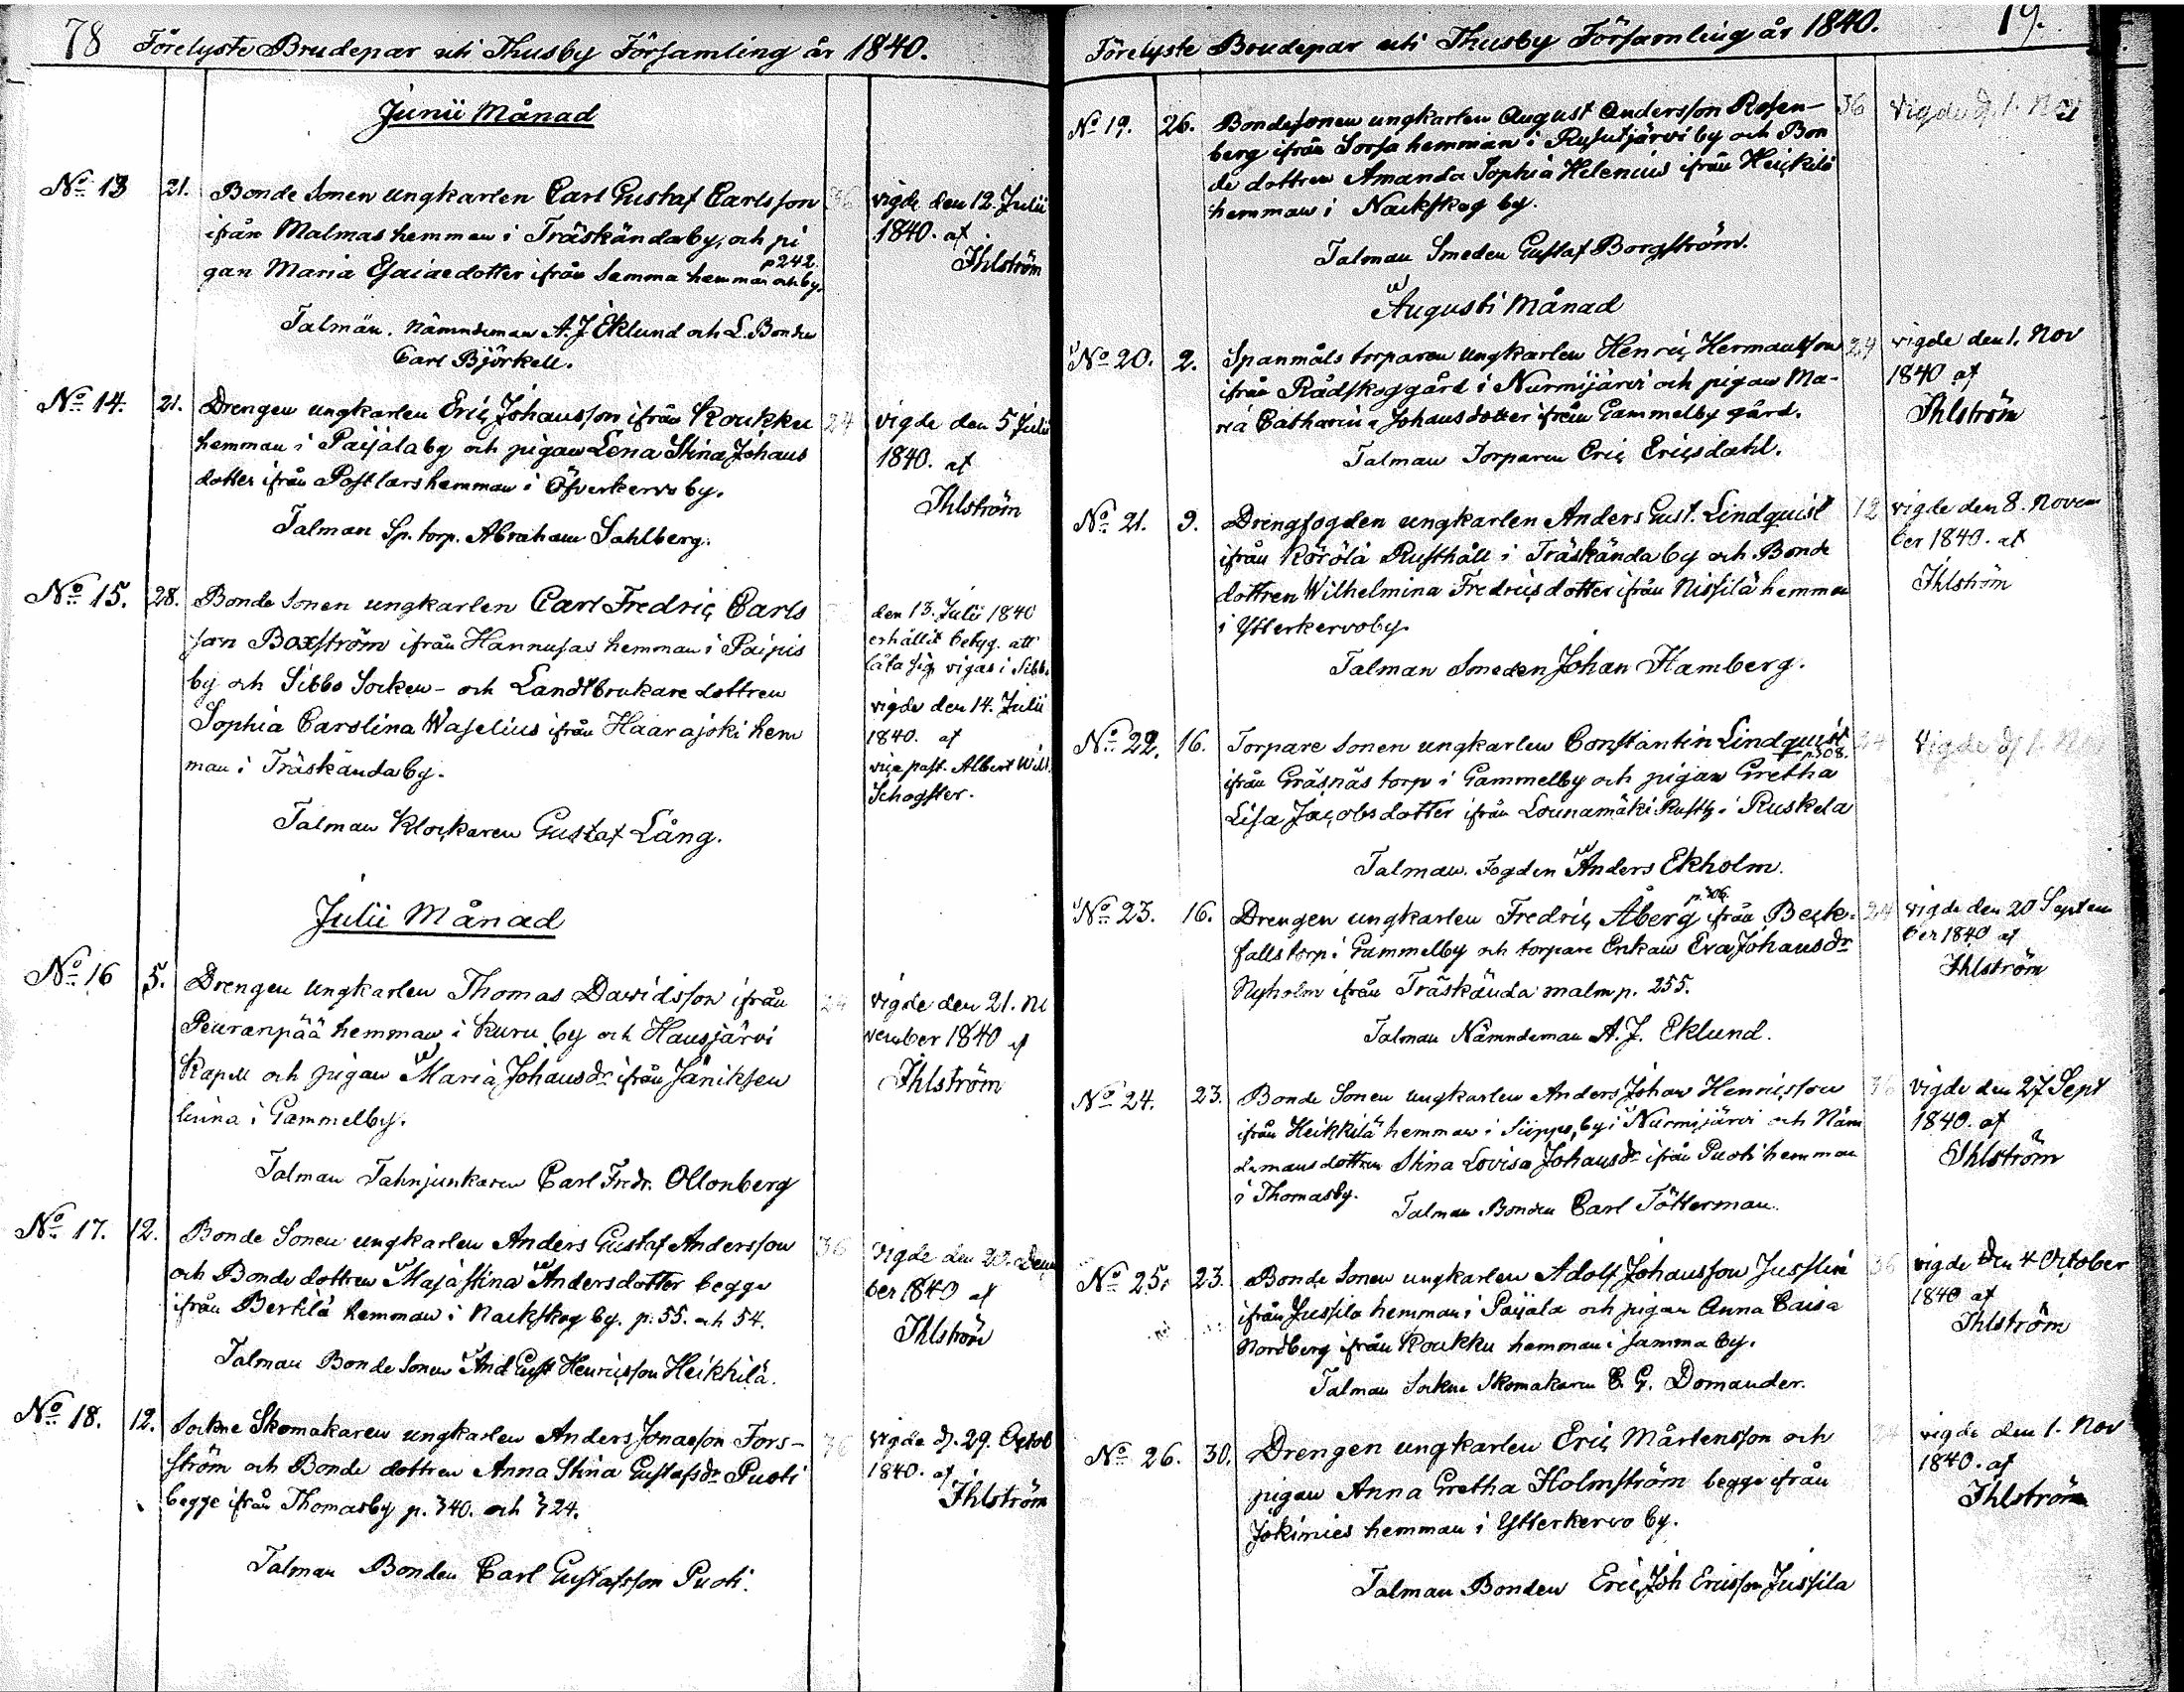 78 Förelyste Brudepar uti Thusby Församling år 1840.
Junii Månad
No 13 21. Bonde Sonen ungkarlen Carl Gustaf Carlsson 36 vigde den 12. Julii
ifrån Malmas hemman i Träskändaby, och pi 1840. af
p 242.
gan Maria Esaiaedotter ifrån Samma hemman och by. Ihlström
Talmän. Nämndeman A. J. Eklund och L. Bonden
Carl Björkell.
No 14. 21. Drengen ungkarlen Eric Johansson ifrån Roukku 24 vigde den 5 Julii
hemman i Paijala by och pigan Lena Stina Johans 1840. af
dotter ifrån Postlars hemman i Öfverkervo by. Ihlström
Talman Sp. torp. Abraham Sahlberg.
No 15. 28. Bonde Sonen ungkarlen Carl Fredric Carls den 13. Julii 1840
son Boxström ifrån Hannusas hemman i Paipis erhållit betyg. att
låta sig vigas i Sibbo
by och Sibbo Socken - och Landtbrukare dottren vigde den 14. Julii
Sophia Carolina Waselius ifrån Haarajoki hem 1840. af
man i Träskändaby. vice past. Albert Wilh.
Schogster.
Talman Klockaren Gustaf Lång.
Julii Månad
No 16 5. Drengen ungkarlen Thomas Davidsson ifrån 24 vigde den 21. No
Peuranpää hemman i Kuru by och Hausjärvi vember 1840 af
Kapell och pigan Maria Johansdr ifrån Jäniksen Ihlström
linna i Gammelby.
Talman Fahnjunkaren Carl Fredr. Ollonberg
No 17. 12. Bonde Sonen ungkarlen Anders Gustaf Andersson 36 vigde den
och Bonde dottren Maja Stina Andersdotter begge ber 1840 af
ifrån Bertilä hemman i Nackskog by. p. 55. och 54. Ihlström
Talman Bonde Sonen And Gust Henricsson Heikkilä.
No 18. 12. Sockne Skomakaren ungkarlen Anders Jonasson Fors- 36 vigde d. 29. Octob
ström och Bonde dottren Anna Stina Gustafsdr Puoti 1840. af
begge ifrån Thomasby p. 340. och 324. Ihlström
Talman Bonden Carl Gustafsson Puoti.
Förelyste Brudepar uti Thusby Församling år 1840. 79.
No 19. 26. Bondesonen ungkarlen August Andersson Rosen- 36 vigde d. 1. Nov
berg ifrån Sorsa hemman i Rusutjärvi by och Bon
de dottren Amanda Sophia Helenius ifrån Heickilä
hemman i Nackskog by.
Talman Smeden Gustaf Borgström.
Augusti Månad
No 20. 2. Spanmåls torparen ungkarlen Henric Hermansson 24 vigde den 1. Nov
ifrån Rådskog gård i Nurmijärvi och pigan Ma- 1840 af
ria Catharina Johansdotter ifrån Gammelby gård. Ihlström
Talman Torparen Eric Ericsdahl.
No 21. 9. Drengfogden ungkarlen Anders Gust. Lindquist 12 vigde den 8. Novem
ifrån Körölä Rusthåll i Träskända by och Bonde ber 1840. af
dottren Wilhelmina Fredricsdotter ifrån Nissilä hemman Ihlström
i Ytterkervoby.
Talman Smeden Johan Hamberg.
No 22. 16. Torpare Sonen ungkarlen Constantin Lindquist 24 vigde d. 1. Nov
p. 308.
ifrån Gräsnäs torp i Gammelby och pigan Gretha
Lisa Jacobsdotter ifrån Lounamäki Rusth. i Ruskela
Talman. Fogden Anders Ekholm.
No 23. 16. Drengen ungkarlen Fredric Åberg ifrån Beck- 24 vigde den 20 Septem
falls torp i Gammelby och torpare Enkan Eva Johansdr ber 1840 af
Nyholm ifrån Träskända malm p. 255. Ihlström
Talman Nämndeman A. J. Eklund.
No 24. 23. Bonde Sonen ungkarlen Anders Johan Henricsson 36 vigde den 27 Sept
ifrån Heikkilä hemman i Siippo, by i Nurmijärvi och Näm 1840. af
demans dottren Stina Lovisa Johansdr ifrån Puoti hemman Ihlström
i Thomasby. Talman Bonden Carl Tötterman.
No 25. 23. Bonde Sonen ungkarlen Adolf Johansson Jusslin 36 vigde den 4 October
ifrån Jussila hemman i Paijala och pigan Anna Caisa 1840 af
Nordberg ifrån Roukku hemman i samma by. Ihlström
Talman Sockne Skomakaren C. G. Domander.
No 26. 30. Drengen ungkarlen Eric Mårtensson och 24 vigde den 1. Nov
pigan Anna Gretha Holmström begge ifrån 1840. af
Jokimies hemman i Ytterkervo by. Ihlström
Talman Bonden Eric Joh Ericsson Jussila